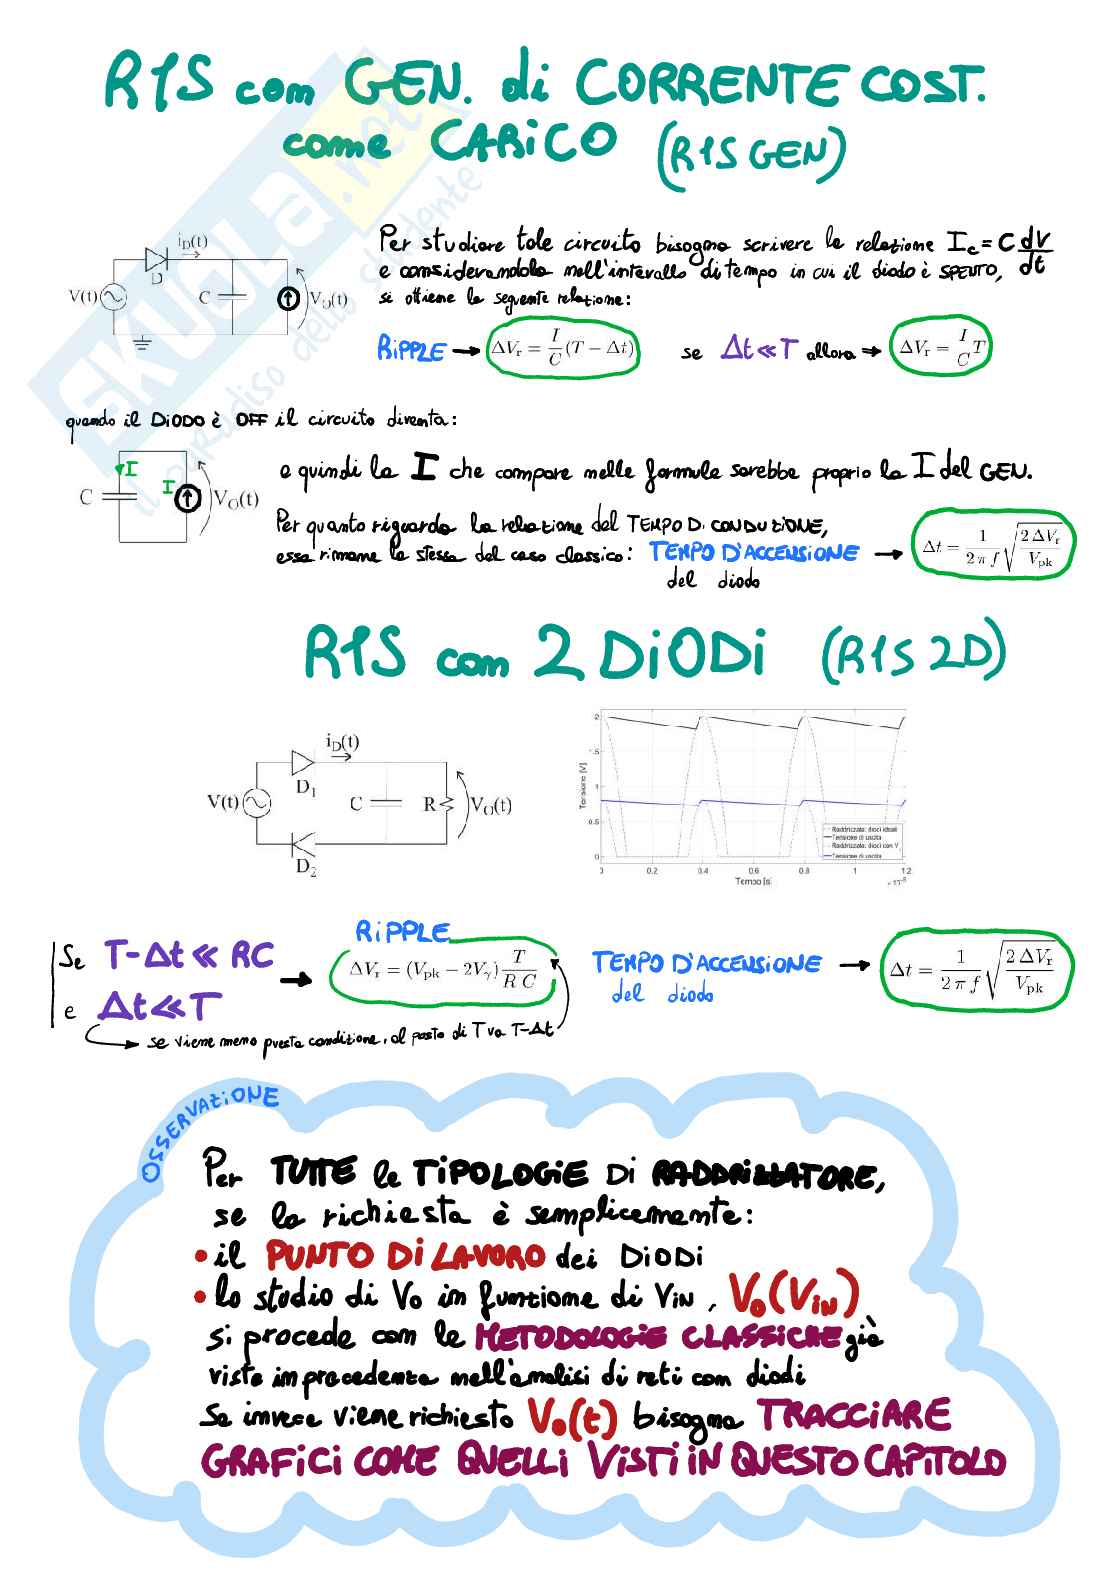 R1S con GEN. di CORRENTE COST.
come CARICO (R1S GEN)
SKUOLA.net
il paradiso dello studente
iD(t)
D
V(t)
C
VO(t)
Per studiare tale circuito bisogna scrivere la relazione Ic = C dV/dt
e considerandola nell'intervallo di tempo in cui il diodo è SPENTO,
si ottiene la seguente relazione:
RIPPLE → ΔVr = I/C (T − Δt) se Δt ≪ T allora → ΔVr = I/C T
quando il DIODO è OFF il circuito diventa:
I
I
C
VO(t)
e quindi la I che compare nelle formule sarebbe proprio la I del GEN.
Per quanto riguarda la relazione del TEMPO DI CONDUZIONE,
essa rimane la stessa del caso classico: TEMPO D'ACCENSIONE → Δt = 1/(2 π f) √(2 ΔVr/Vpk)
del diodo
R1S con 2 DIODI (R1S 2D)
iD(t)
D1
V(t)
C
R
VO(t)
D2
Tensione [V]
2
1.5
1
0.5
0
0 0.2 0.4 0.6 0.8 1 1.2
Tempo [s]
Raddrizzata: diodi ideali
Tensione di uscita
Raddrizzata: diodi con V
Tensione di uscita
Se T-Δt ≪ RC
e Δt ≪ T
→ RIPPLE
ΔVr = (Vpk − 2Vγ) T/(R C)
se viene meno questa condizione, al posto di T va T-Δt
TEMPO D'ACCENSIONE → Δt = 1/(2 π f) √(2 ΔVr/Vpk)
del diodo
OSSERVAZIONE
Per TUTTE le TIPOLOGIE DI RADDRIZZATORE,
se la richiesta è semplicemente:
• il PUNTO DI LAVORO dei DIODI
• lo studio di Vo in funzione di VIN, Vo(VIN)
si procede con le METODOLOGIE CLASSICHE già
viste in precedenza nell'analisi di reti con diodi
Se invece viene richiesto Vo(t) bisogna TRACCIARE
GRAFICI COME QUELLI VISTI IN QUESTO CAPITOLO